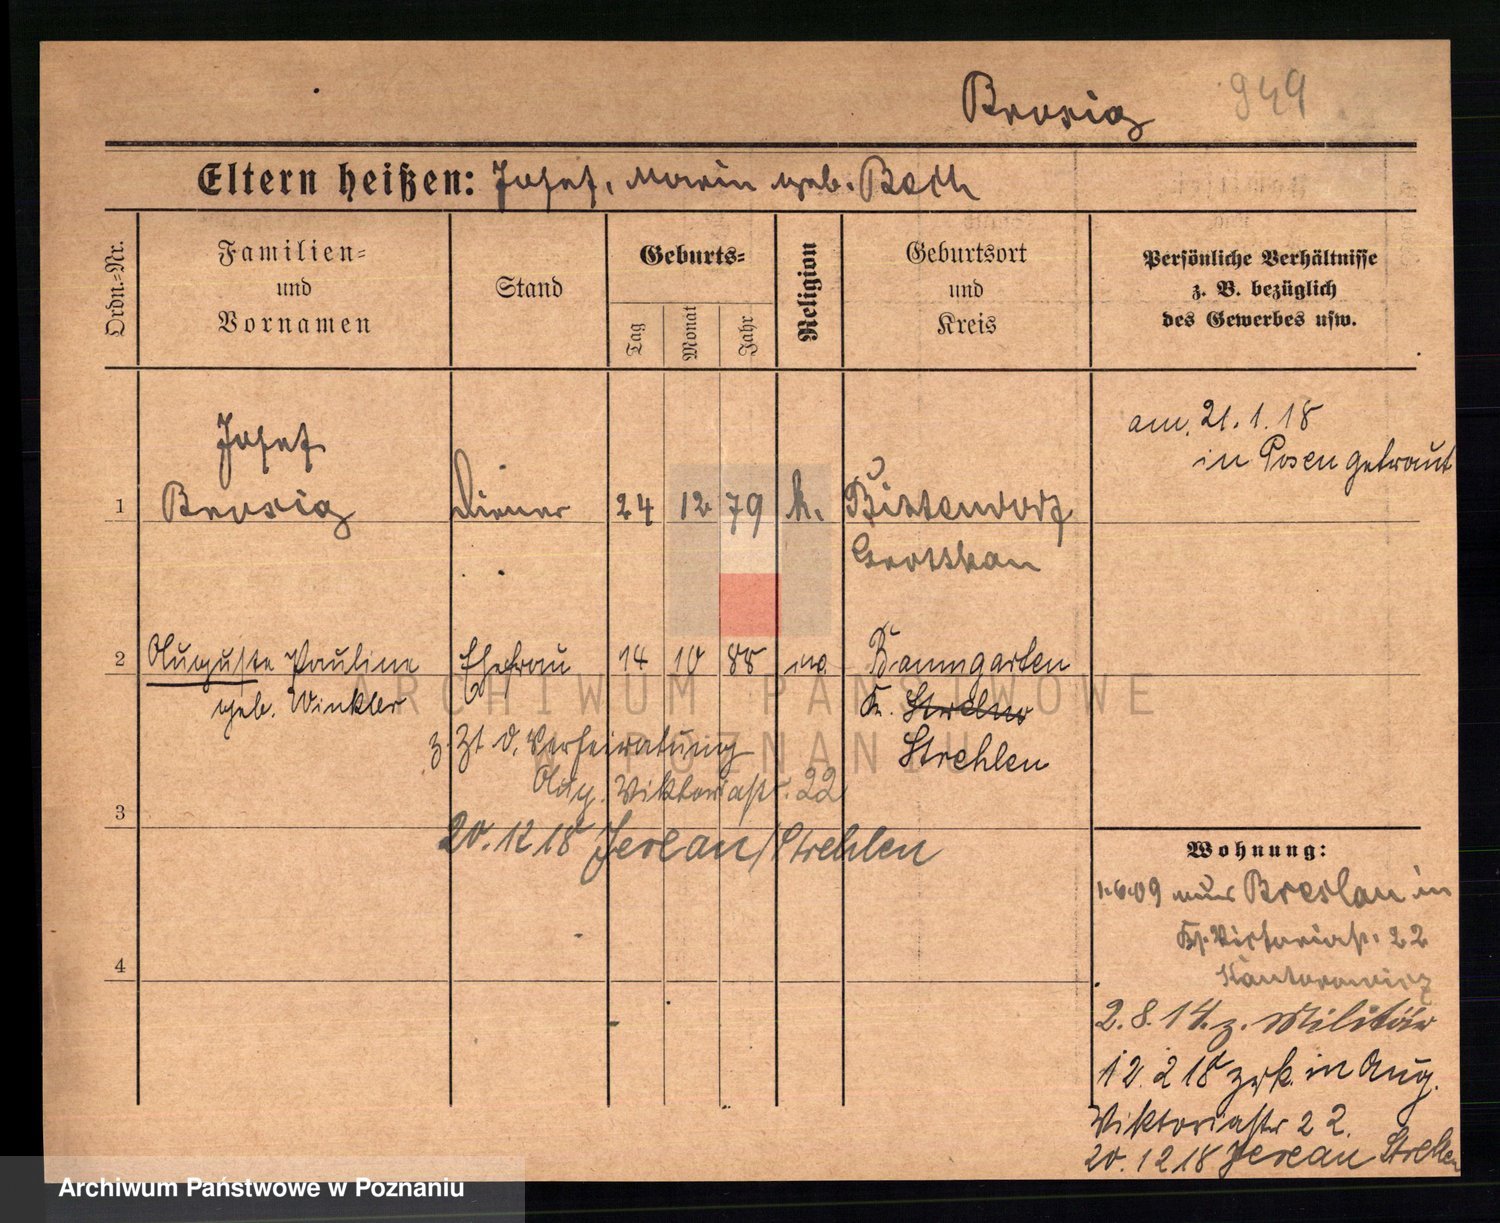 Brosig 949
Eltern heißen: Josef, Marin geb. Beck
Ordn.-Nr.
Familien-
und
Vornamen
Stand
Geburts-
Tag
Monat
Jahr
Religion
Geburtsort
und
Kreis
Persönliche Verhältnisse
z. B. bezüglich
des Gewerbes usw.
am. 21.1.18
in Posen getraut
1 Josef
Brosig Diener 24 12 79 k. Bittendorf
Grottkau
2 Auguste Pauline Ehefrau 14 10 88 Baumgarten
geb. Winkler Kr. Strelno
Strehlen
z. Zt. d. Verheiratung
Aug. Viktoriastr. 22
3
20.12 18 /Strehlen
4
Wohnung:
1.6.09 Breslau in
Viktoriast. 22
Kantorowicz
2.8.14. z. Militär
12.2 18 zrk. in Aug.
Viktoriastr 22.
20.12 18 Strehlen
ARCHIWUM PAŃSTWOWE
W POZNANIU
Archiwum Państwowe w Poznaniu